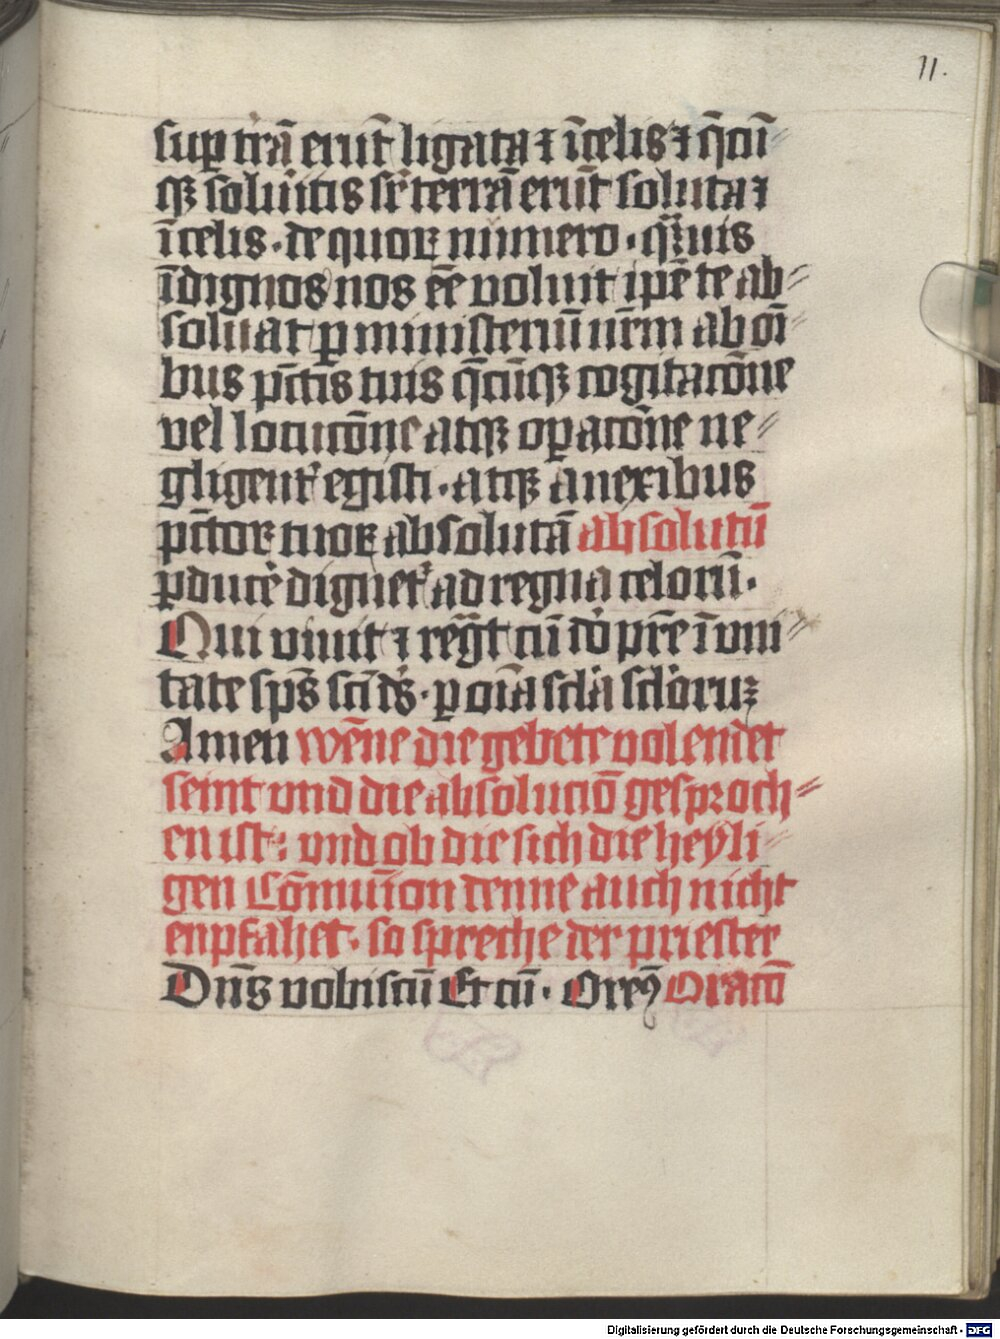 11.
sup trā erūt ligata ⁊ ī celis ⁊ q̄cū
qꝫ soluitis sr̄ terrā erūt soluta ⁊
ī celis · de quoꝝ numero · qͣuis
īdignos nos eē voluit ipē te ab⸗
soluat ꝑ ministeriū nr̄m ab oī⸗
bus pc̄tis tuis q̄cūqꝫ cogitacōne
vel locucōne atqꝫ oꝑacōne ne⸗
gligent᷑ egisti · atqꝫ a nexibus
pc̄toꝝ tuoꝝ absolutā absolutū
ꝑduce͛ dignet᷑ ad regna celorū ·
Qui viuit ⁊ regͣt cū do͛ pr̄e ī vni⸗
tate sp̄s sc̄i ds̄ · ꝑ oīa scl̄a scl̄oruꝫ
Amen wēne die gebete volendet
seint vnd die absoluciō gesproch⸗
en ist : vnd ob die sich die heyli⸗
gen Cōmuīon denne auch nicht
enpfahet · so spreche der priester
Dn̄s vobiscū Et cū · Orem᷒ Oracō
Digitalisierung gefördert durch die Deutsche Forschungsgemeinschaft - DFG